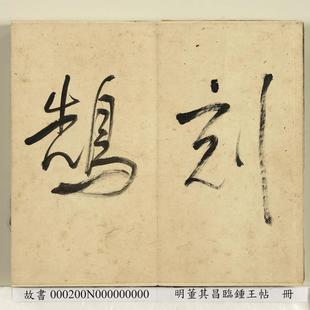 刻
鵠
故書 000200N000000000 明董其昌臨鍾王帖 冊